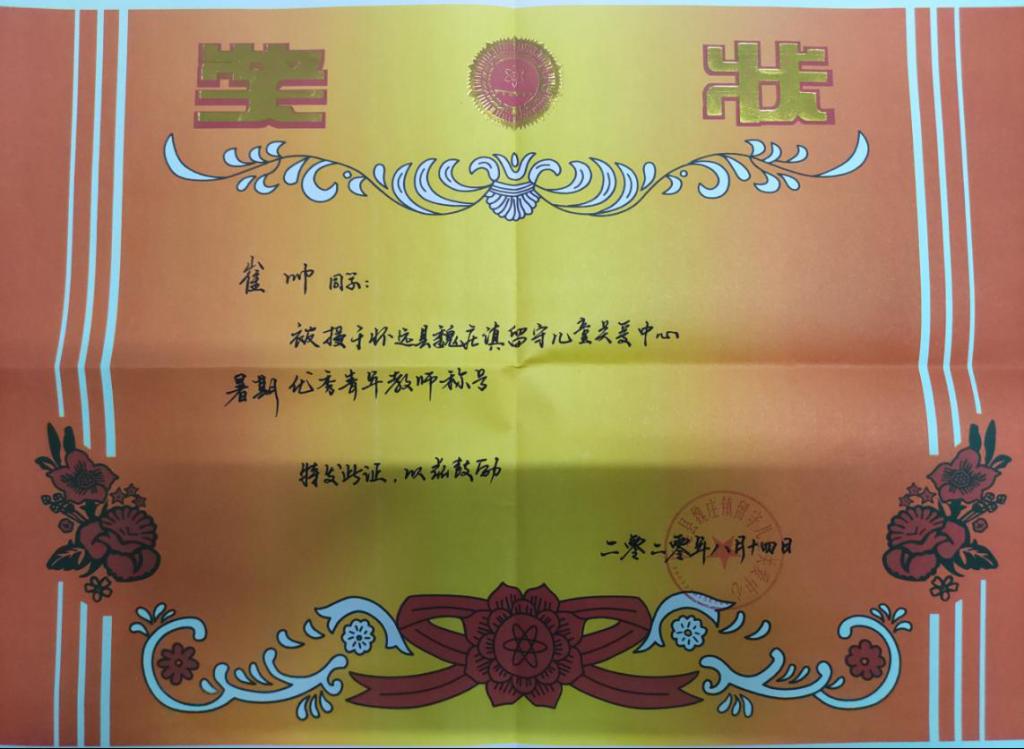 奖状
崔帅同学：
被授予怀远县魏庄镇留守儿童关爱中心
暑期优秀青年教师称号
特发此证，以兹鼓励
二零二零年八月十四日
县魏庄镇留守儿童关爱中心